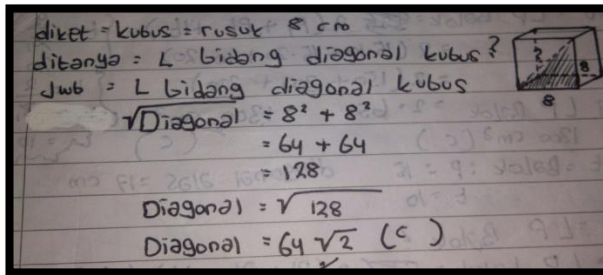 diket = kubus = rusuk 8 cm
ditanya = L bidang diagonal kubus?
Jwb = L bidang diagonal kubus
√Diagonal = 8² + 8²
= 64 + 64
= 128
Diagonal = √128
Diagonal = 64√2 (C)
?
8
8